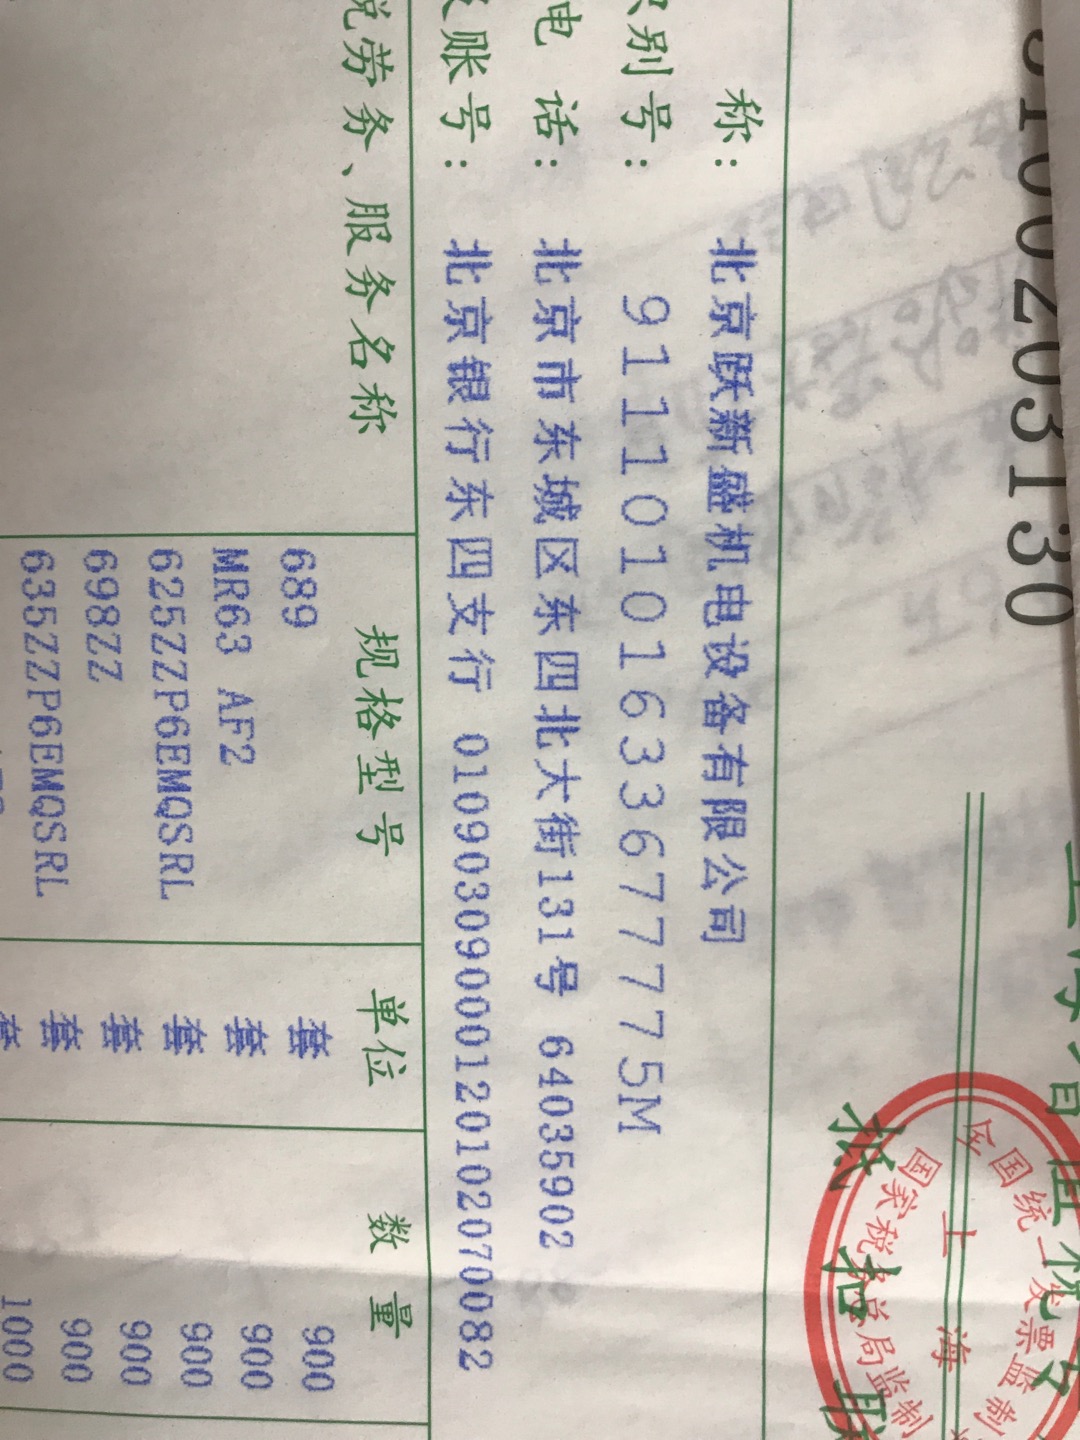 3100203130
全国统一发票监制
上海
国家税务总局监制
抵扣联
称： 北京跃新盛机电设备有限公司
识别号： 91110101633677775M
电话： 北京市东城区东四北大街131号 64035902
账号： 北京银行东四支行 01090309000120102070082
税劳务、服务名称 规格型号 单位 数量
689 套 900
MR63 AF2 套 900
625ZZP6EMQSRL 套 900
698ZZ 套 900
635ZZP6EMQSRL 套 900
套 1000